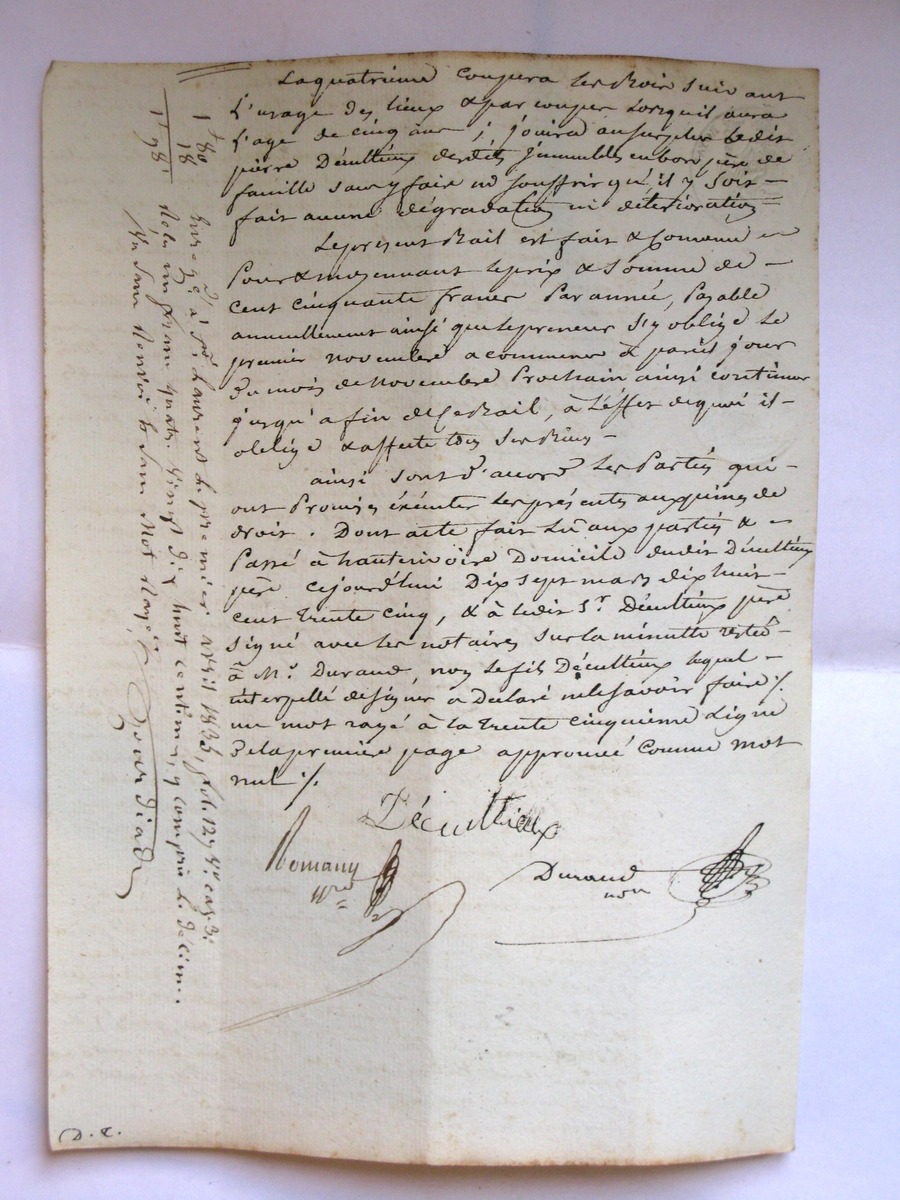 La quatrieme Coupera les Bois suivant
L'usage des lieux & par coupes Lorsquil aura
L'age de cinq ans ; jouira au surplus ledit
pierre Décultieux desdits jmmeubles en bon pere de
famille sans y faire ni souffrir qu'il y soit
fait aucune dégradation ni déterioration
Le present Bail est fait & Convenu
Pour & moyennant le prix & Somme de
cent cinquante francs Par année, Payable
annuellement ainsi que le preneur s'y oblige le
premier novembre a commencer à pareil jour
du mois de Novembre Prochain ainsi continuer
jusqu'a fin de Ce Bail, à L'éffet de quoi il
oblige & affecte tous Ses Biens
ainsi sont d'accord Les Parties qui
ont Promis éxécuter les présentes aux peines de
droit. Dont acte fait Lu aux parties &
Passé à hauterivoire Domicile dudit Décultieux
père cejourd'hui Dix Sept mars dix huit
cent trente cinq, & à ledit Sr. Décultieux père
signé avec les notaires sur la minutte restée
à Me. Durand, non le fils Décultieux lequel
interpellé de signer a Déclaré ne le savoir faire ./.
un mot rayé à la trente cinquieme Ligne
de la premiere page approuvé Comme mot
nul ./.
Décultieux
Romany
Durand
nore
1 80
18
1 98
à St. Laurent le premier avril 1835, fol. 129 Vo. cas. 3.
Reçu un franc quatre vingt dix huit centimes, y compris le décime.
D. C.